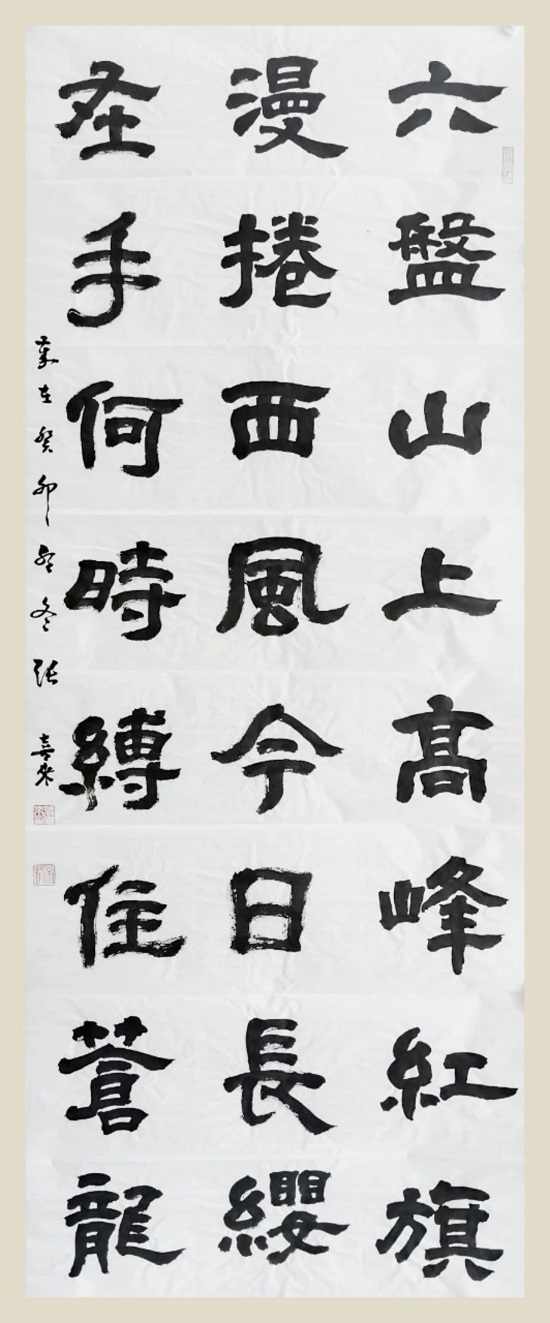 六盤山上高峰紅旗
漫捲西風今日長纓
在手何時縛住蒼龍
歲在癸卯冬张喜来